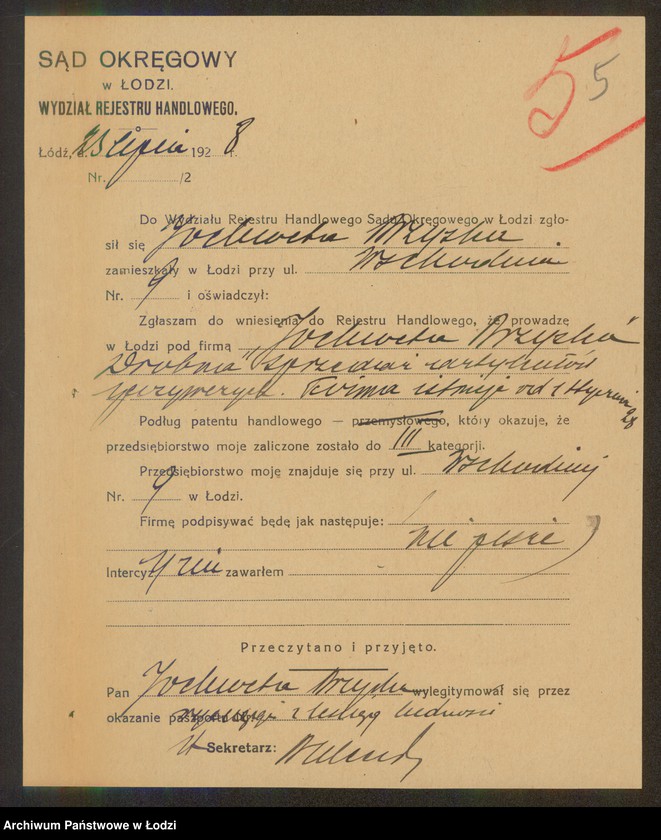 5 5
SĄD OKRĘGOWY
w ŁODZI.
WYDZIAŁ REJESTRU HANDLOWEGO.
Łódź, d. 23 lipca 1928 r.
Nr. /2
Do Wydziału Rejestru Handlowego Sądu Okręgowego w Łodzi zgło-
sił się Jochweta Brzyska
zamieszkały w Łodzi przy ul. Wschodnia
Nr. 9 i oświadczył:
Zgłaszam do wniesienia do Rejestru Handlowego, że prowadzę
w Łodzi pod firmą „Jochweta Brzyska"
Drobna sprzedaż artykułów
spożywczych. Firma istnieje od 1 stycznia 28
Podług patentu handlowego — przemysłowego, który okazuje, że
przedsiębiorstwo moje zaliczone zostało do III kategorji.
Przedsiębiorstwo moje znajduje się przy ul. Wschodniej
Nr. 9 w Łodzi.
Firmę podpisywać będę jak następuje:
nie pisze
Intercyzy nie zawarłem
Przeczytano i przyjęto.
Pan Jochweta Brzyska wylegitymował się przez
okazanie paszportu z ksiąg ludności
Sekretarz:
Archiwum Państwowe w Łodzi